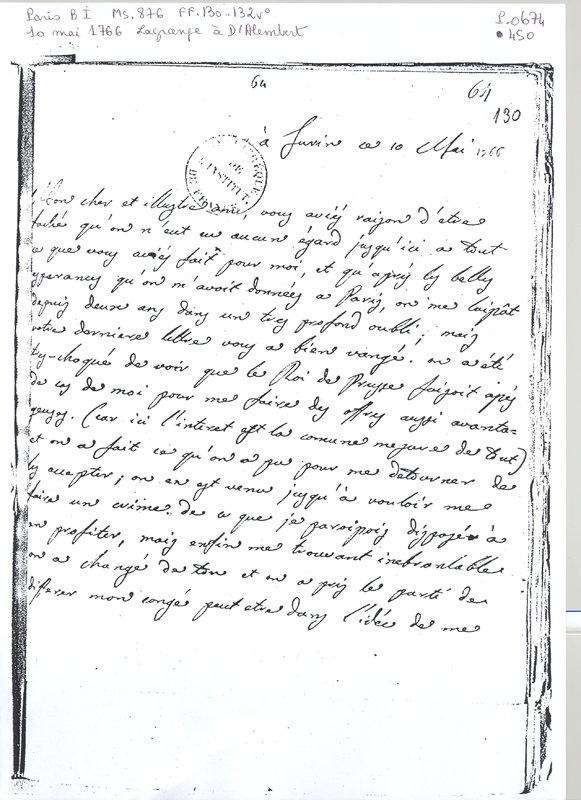 Paris BI Ms. 876 FF. 130-132v°
10 mai 1766 Lagrange à D'Alembert
P.0674
• 450
64
64
130
à Turin ce 10 Mai 1766
BIBLIOTHEQUE DE L'INSTITUT
Mon cher et illustre ami, vous aviés raison d'etre
faché qu'on n'eut eu aucun égard jusqu'ici a tout
ce que vous aviés fait pour moi, et qu'après les belles
esperances qu'on m'avoit données a Paris, on me laissât
depuis deux ans dans un tres profond oubli; mais
votre derniere lettre vous a bien vangé. on a été
tres-choqué de voir que le Roi de Prusse faisoit assés
de cas de moi pour me faire des offres aussi avanta=
geuses. (car ici l'interet est la comune mesure de tout)
et on a fait ce qu'on a pu pour me détourner de
les accepter; on en est venu jusqu'à vouloir me
faire un crime de ce que je paroissois disposé à
en profiter, mais enfin me trouvant inebranlable
on a changé de ton et on a pris le parti de
differer mon congé peut etre dans l'idée de me